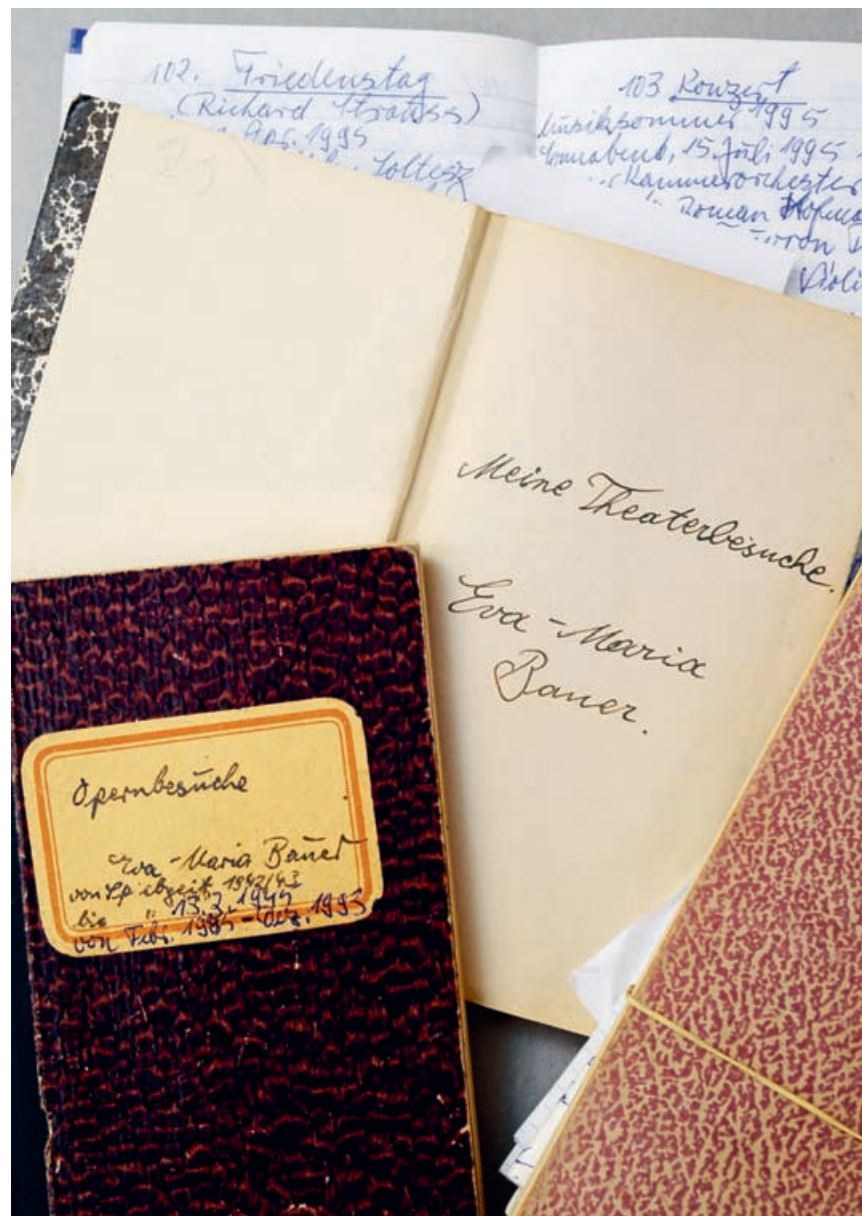 102. Friedenstag
(Richard Strauss)
1995
Soltesz
103 Konzert
Musiksommer 1995
Sonnabend, 15. Juli 1995
Kammerorchester
Roman
von
Meine Theaterbesuche.
Eva-Maria
Bauer.
Opernbesuche
Eva-Maria Bauer
von 1942/43
bis " 13.2.1945
von Febr. 1985 - Dez. 1995